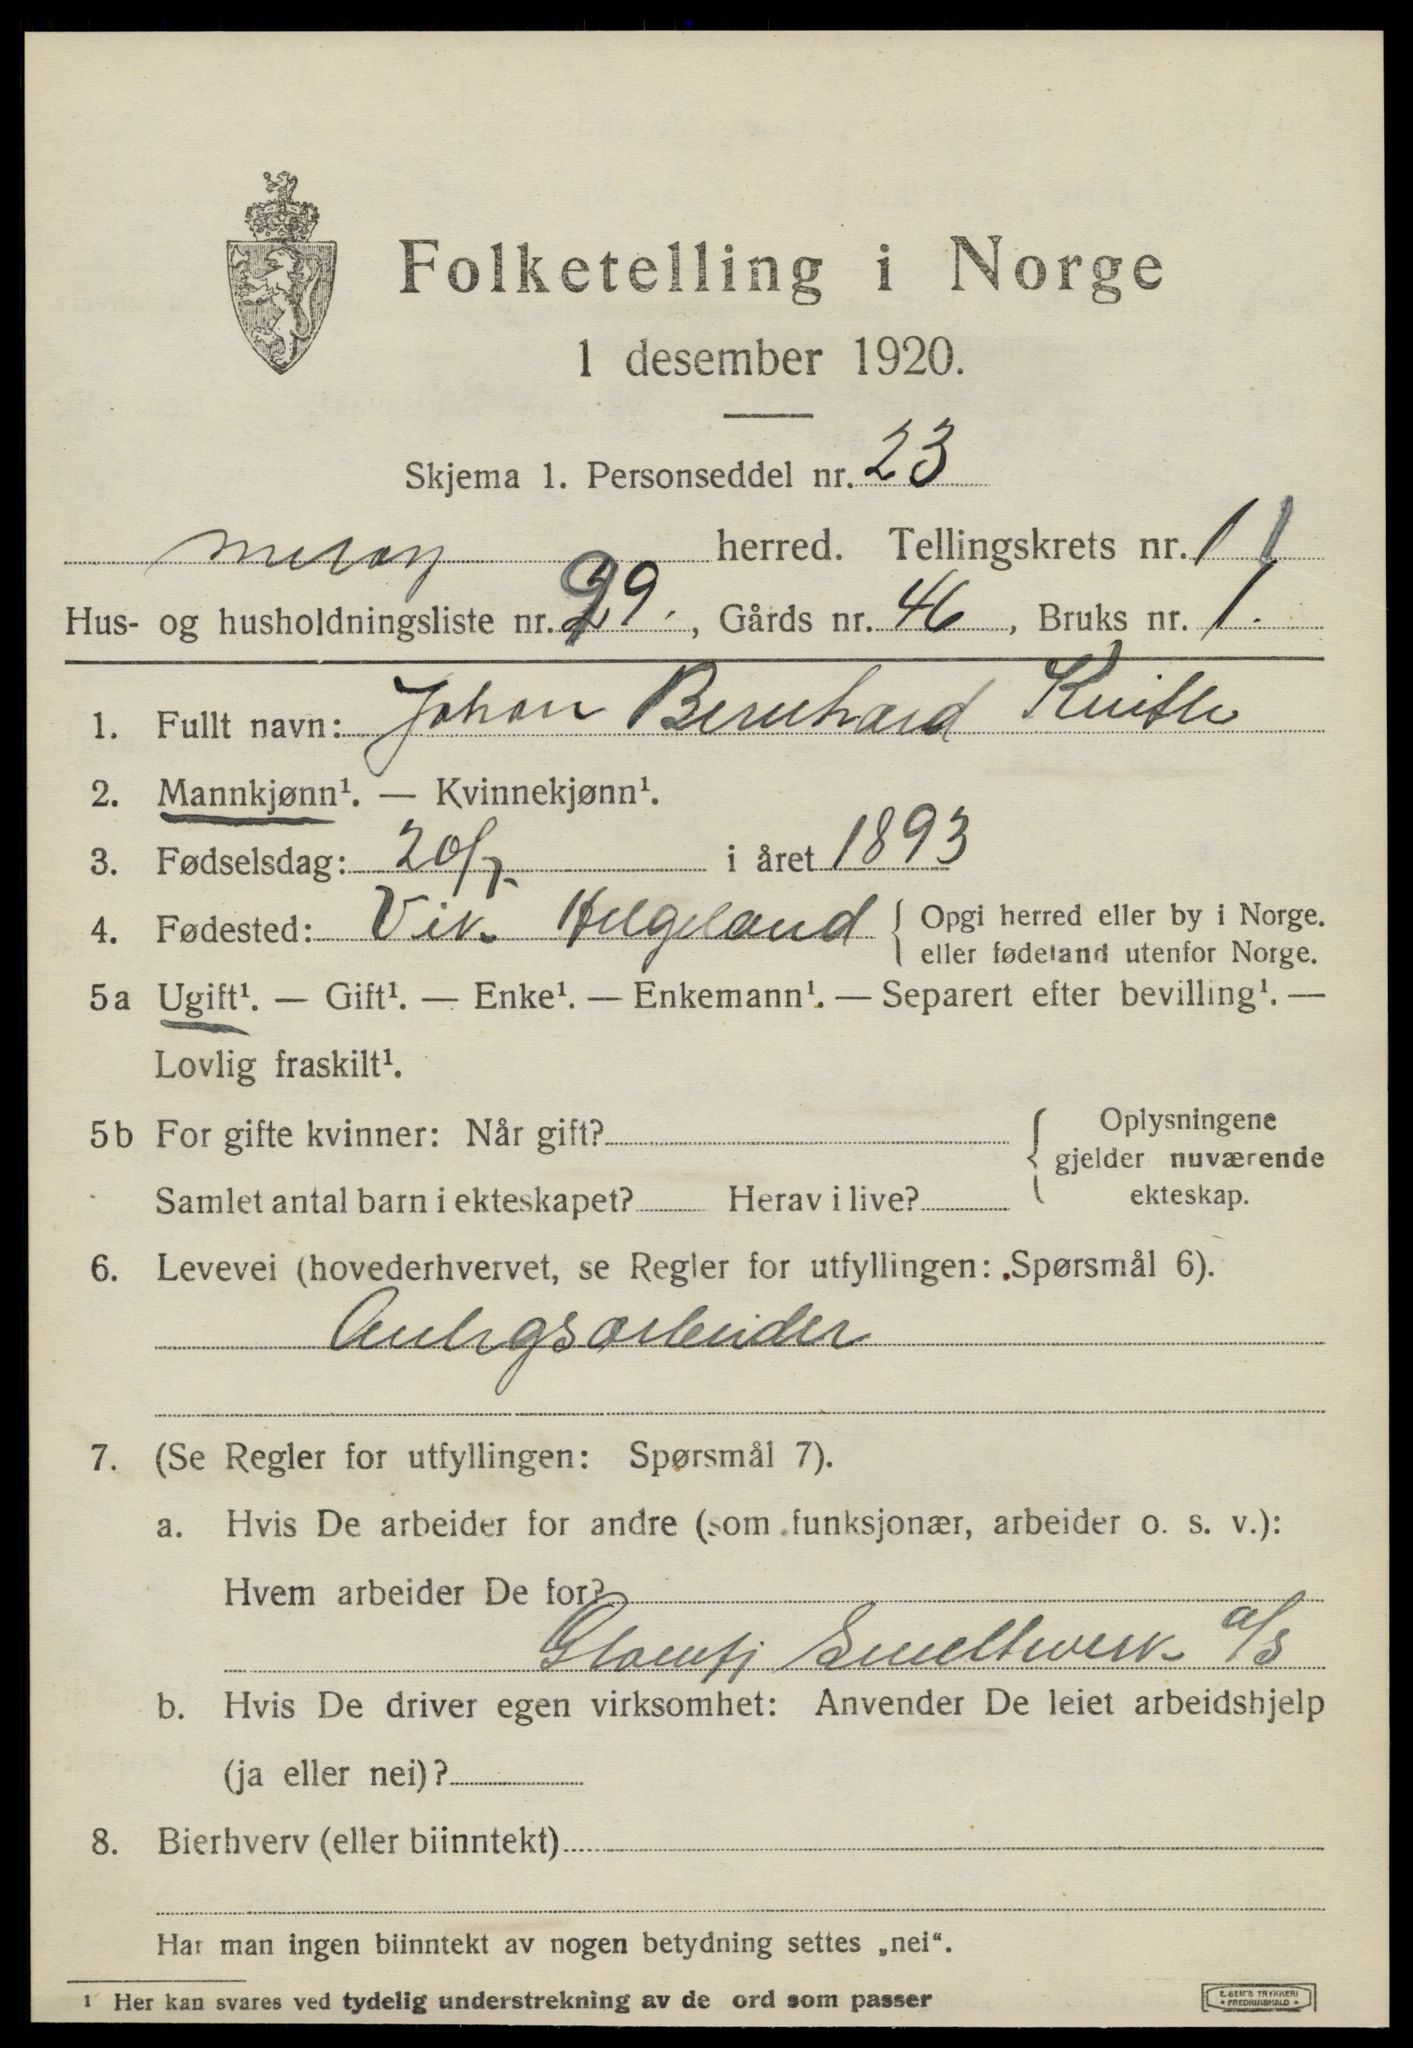 Folketelling i Norge
1 desember 1920.
Skjema 1. Personseddel nr. 23
Meløy herred. Tellingskrets nr. 11
Hus- og husholdningsliste nr. 29., Gårds nr. 46, Bruks nr. 1.
1. Fullt navn: Johan Bernhard
2. Mannkjønn¹. — Kvinnekjønn¹.
3. Fødselsdag: 20/7. i året 1893
4. Fødested: Vik. Helgeland { Opgi herred eller by i Norge.
eller fødeland utenfor Norge.
5a Ugift¹. — Gift¹. — Enke¹. — Enkemann¹. — Separert efter bevilling¹. —
Lovlig fraskilt¹.
5b For gifte kvinner: Når gift? { Oplysningene
gjelder nuværende
Samlet antal barn i ekteskapet? Herav i live? ekteskap.
6. Levevei (hovederhvervet, se Regler for utfyllingen: Spørsmål 6).
Anlegsarbeider
7. (Se Regler for utfyllingen: Spørsmål 7).
a. Hvis De arbeider for andre (som funksjonær, arbeider o. s. v.):
Hvem arbeider De for?
Glomfj Smeltverk a/s
b. Hvis De driver egen virksomhet: Anvender De leiet arbeidshjelp
(ja eller nei)?
8. Bierhverv (eller biinntekt)
Har man ingen biinntekt av nogen betydning settes „nei“.
¹ Her kan svares ved tydelig understrekning av de ord som passer
E. SEM'S TRYKKERI
• FREDRIKSHALD •